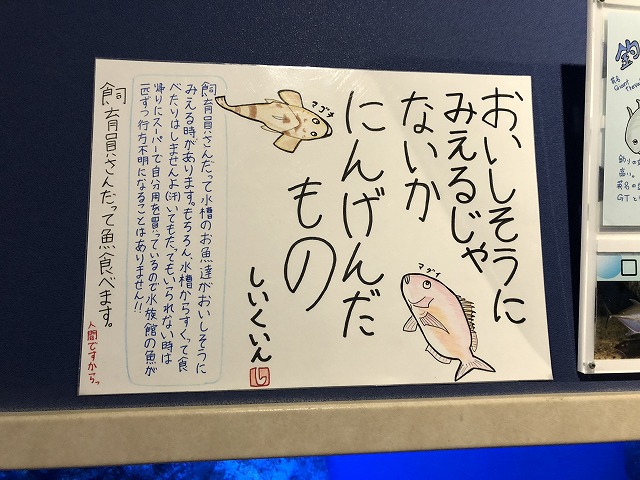 おいしそうに
みえるじゃ
ないか
にんげんだ
もの
しいくいん
マゴチ
マダイ
飼育員さんだって水槽のお魚達がおいしそうに
みえる時があります。もちろん、水槽からすくって食
べたりはしませんよ(汗)いてもたってもいられない時は
帰りにスーパーで自分用を買っているので水族館の魚が
一匹ずつ行方不明になることはありません!!
飼育員さんだって魚食べます。
人間ですからっ
釣
英名
Giant
釣りの
高い。
英名の
GTと